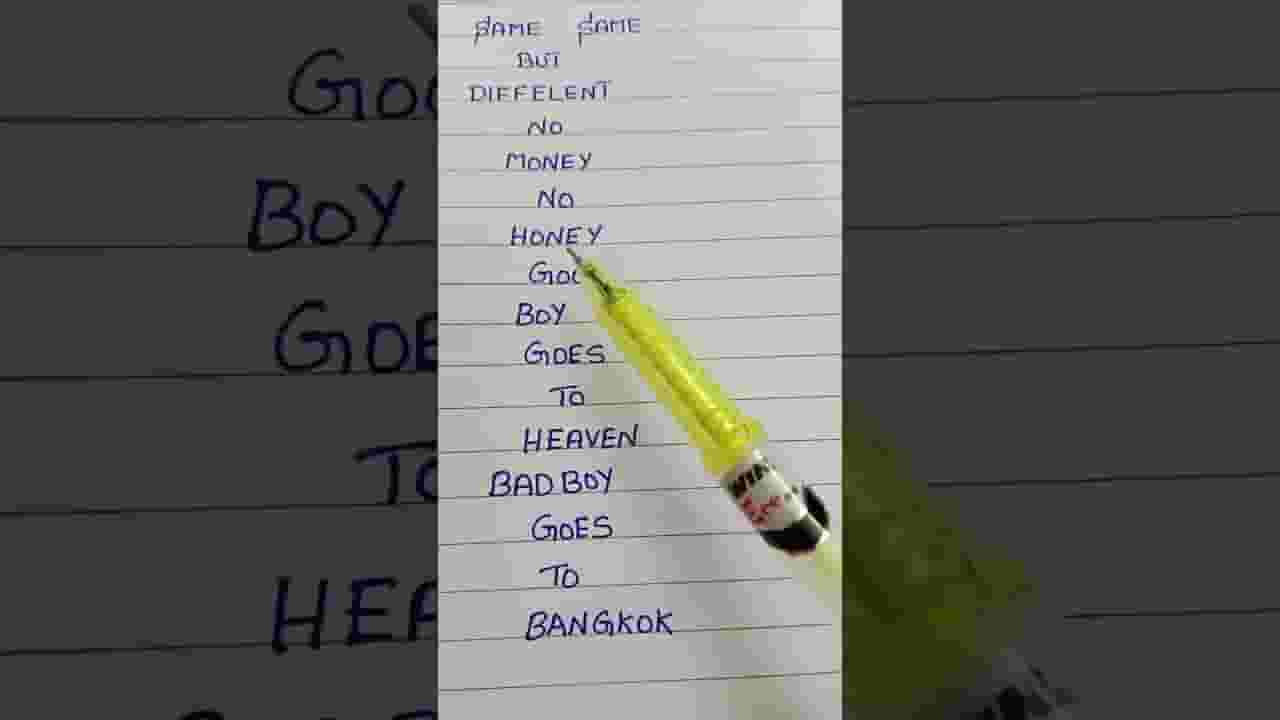 SAME SAME
BUT
DIFFELENT
NO
MONEY
NO
HONEY
GOO
BOY
GOES
TO
HEAVEN
BAD BOY
GOES
TO
BANGKOK